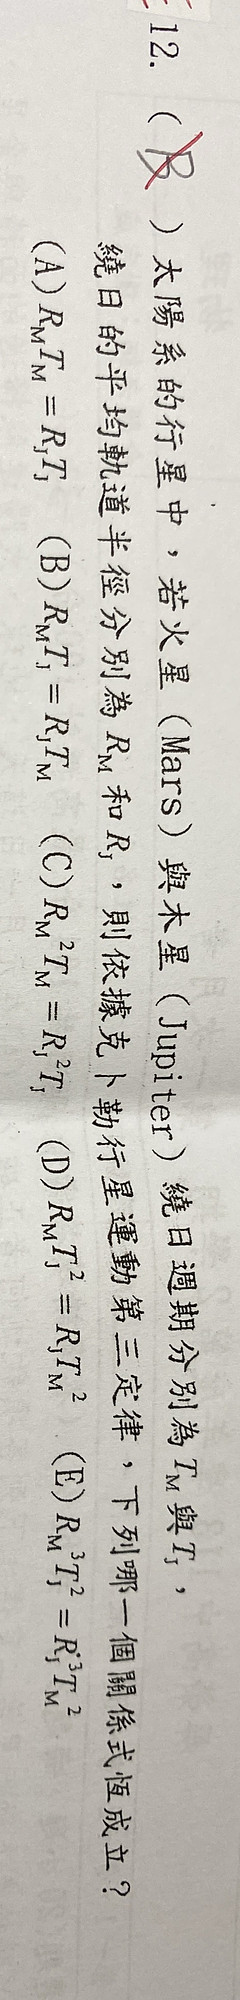 12. ( B ) 太陽系的行星中，若火星（Mars）與木星（Jupiter）繞日週期分別為 T_M 與 T_J，
繞日的平均軌道半徑分別為 R_M 和 R_J，則依據克卜勒行星運動第三定律，下列哪一個關係式恆成立？
(A) R_M T_M = R_J T_J (B) R_M T_J = R_J T_M (C) R_M² T_M = R_J² T_J (D) R_M T_J² = R_J T_M² (E) R_M³ T_J² = R_J³ T_M²